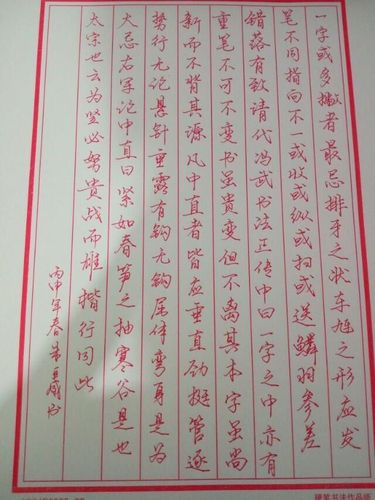 一字或多撇者最忌排牙之状车旭之形应发
笔不同指向不一或收或纵或扫或送鳞羽参差
错落有致清代冯武书法正传中曰一字之中亦有
重笔不可不变书虽贵变但不离其本字虽尚
新而不背其源凡中直者皆应垂直劲挺管逐
势行无论悬针垂露有钩无钩尾体弯身是为
大忌右军论中直曰紧如春笋之抽寒谷是也
太宗世云为竖必努贵战而雄楷行同此
丙申年春
硬笔书法作品纸